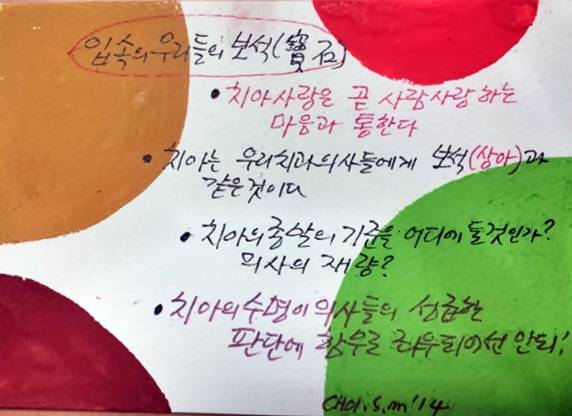 입속의 우리들의 보석(寶石)
• 치아사랑은 곧 사람사랑하는
마음과 통한다
• 치아는 우리치과의사들에게 보석(상아)과
같은것이다
• 치아의 총살의 기준을 어디에 둘것인가?
의사의 재량?
• 치아의 수명이 의사들의 성급한
판단에 함부로 좌우되어선 안되!
CHOI.S.M '14